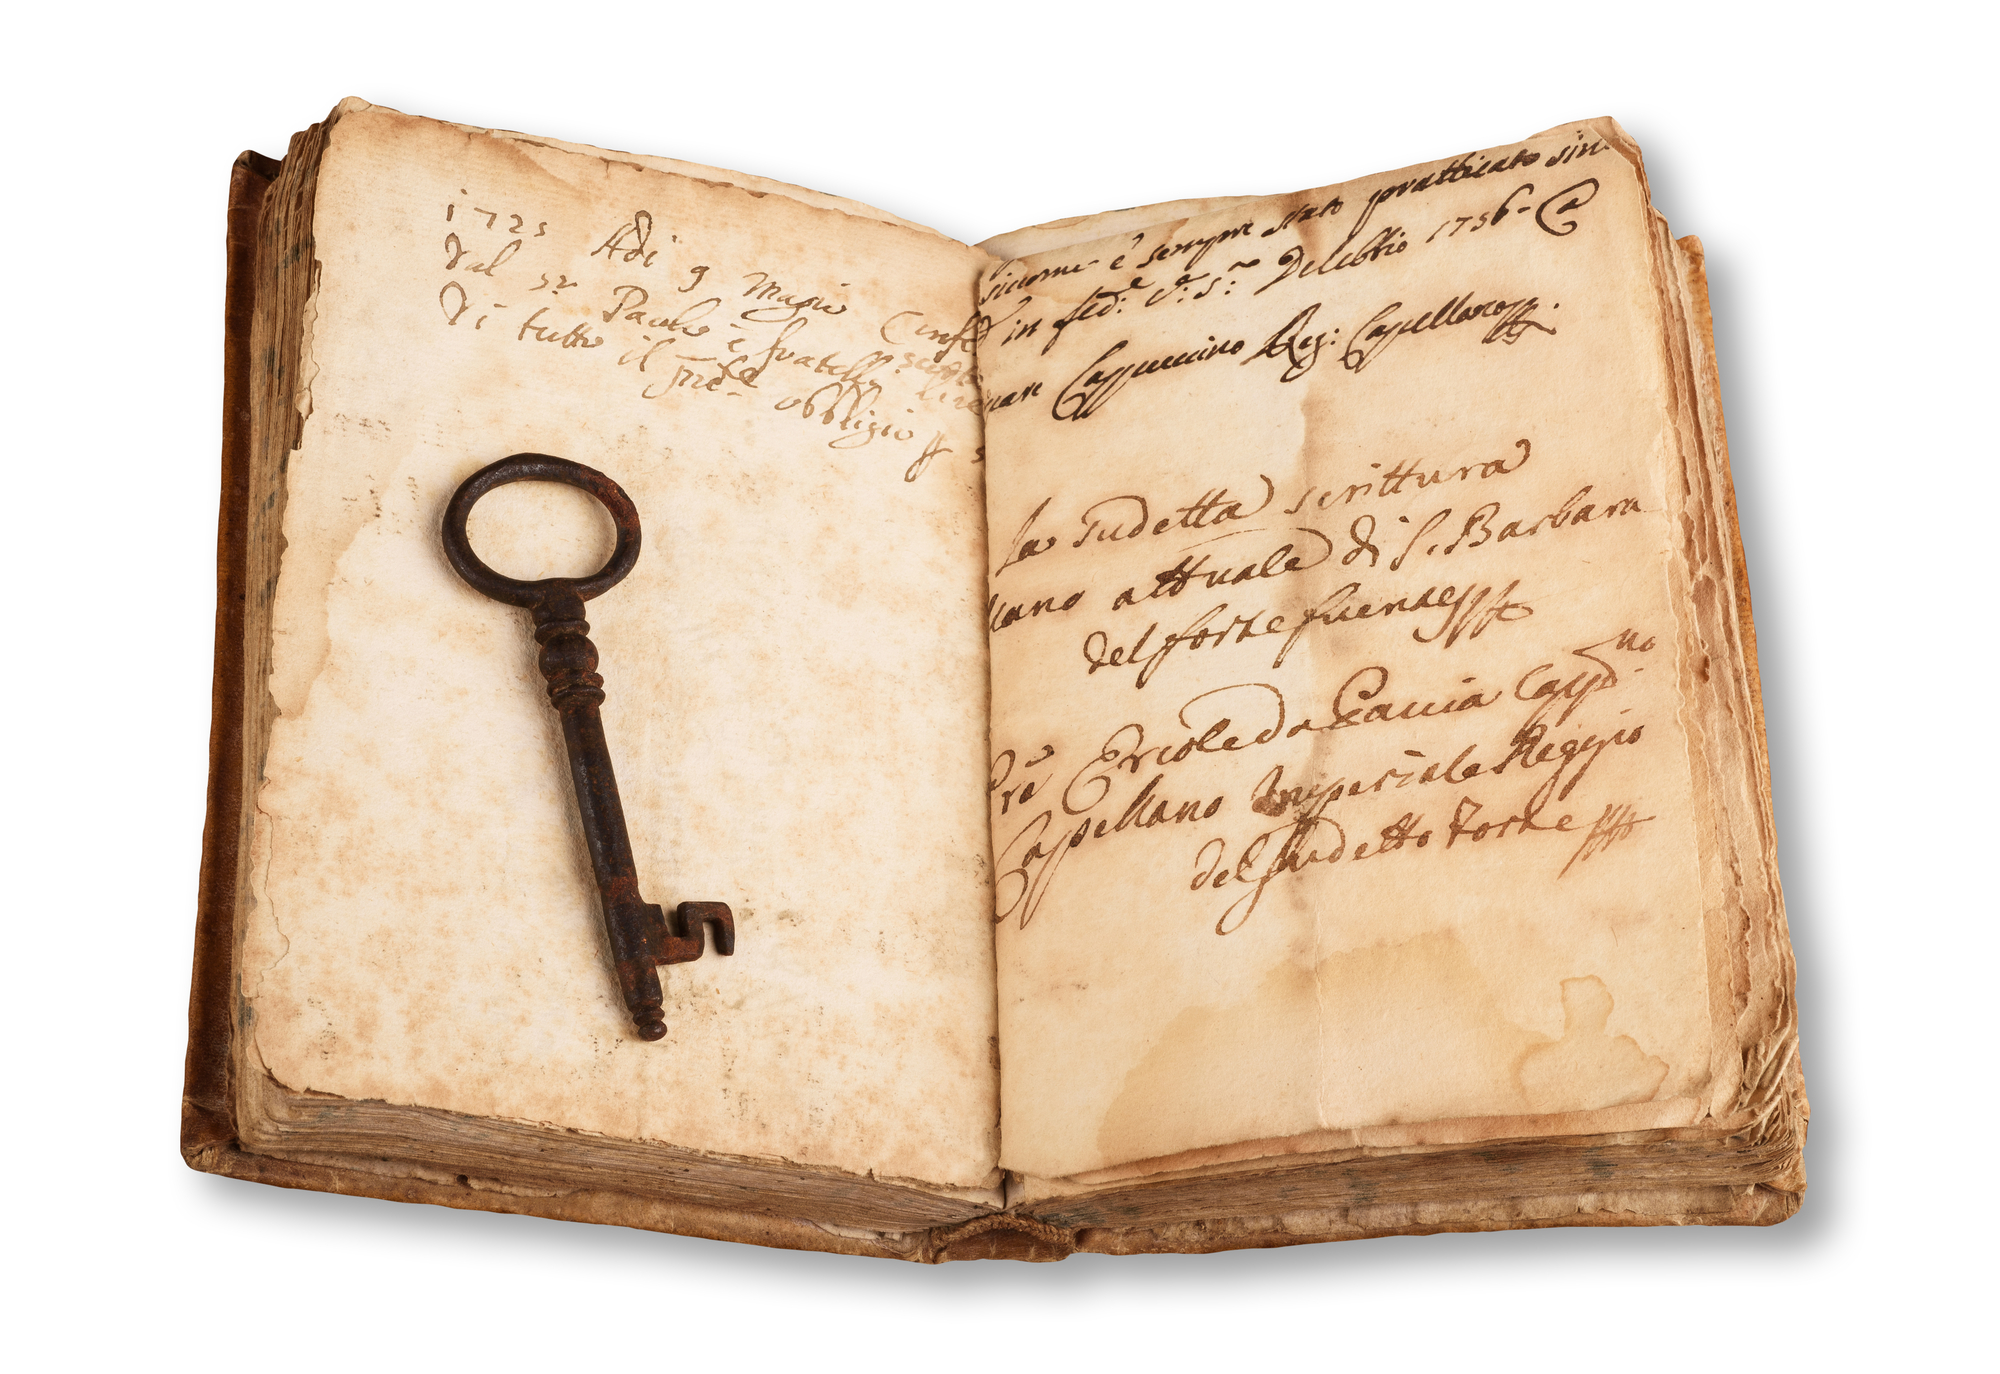 1725 Adi 9 Magio
dal Paulo e fratelli
di tutto il obbligio
siccome è sempre stato pratticato sin
in fed:e Delebbio 1756
Cappuccino Reg: Capellano
la sudetta scrittura
attuale di S. Barbara
del forte fuentes
Ercole da Caccia Capp:no
Capellano Imperiale Reggio
del sudetto forte